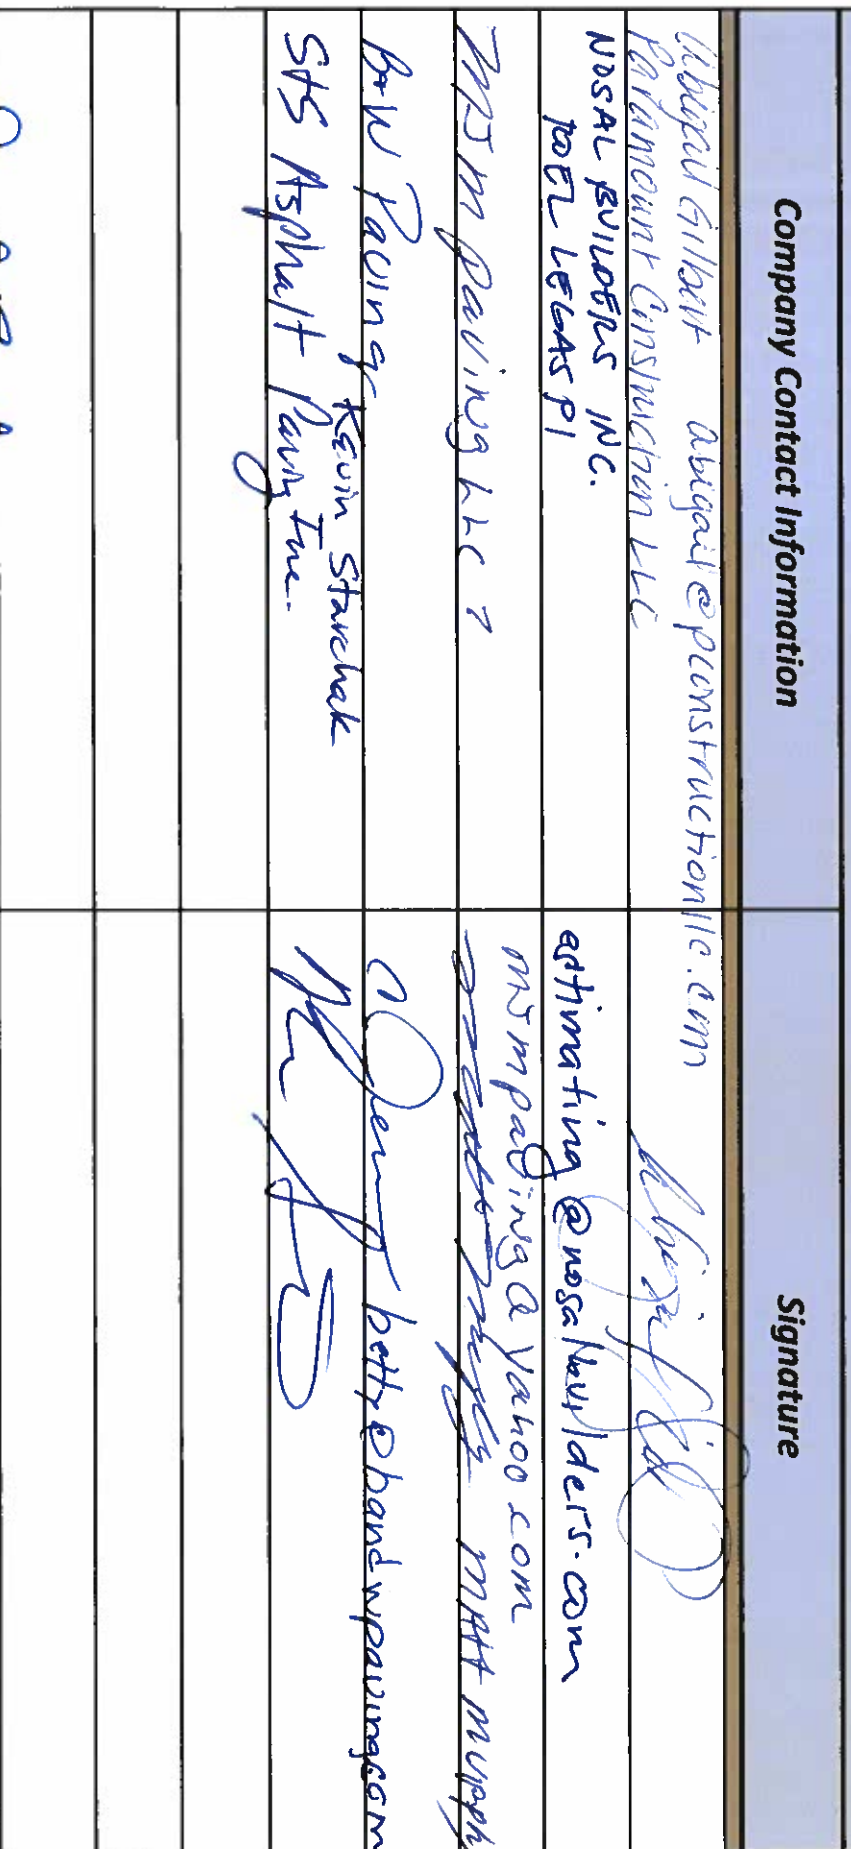 Company Contact Information
Signature
Abigail Gilbert abigail@pconstructionllc.com
Paramount Construction LLC
NOSAL BUILDERS INC.
JOEL LEGASPI
estimating@nosalbuilders.com
MJM Paving LLC
mjmpaving@yahoo.com
Matt Murph
B+W Paving
betty@bandwpaving.com
Kevin Starchak
StS Asphalt Paving Inc.